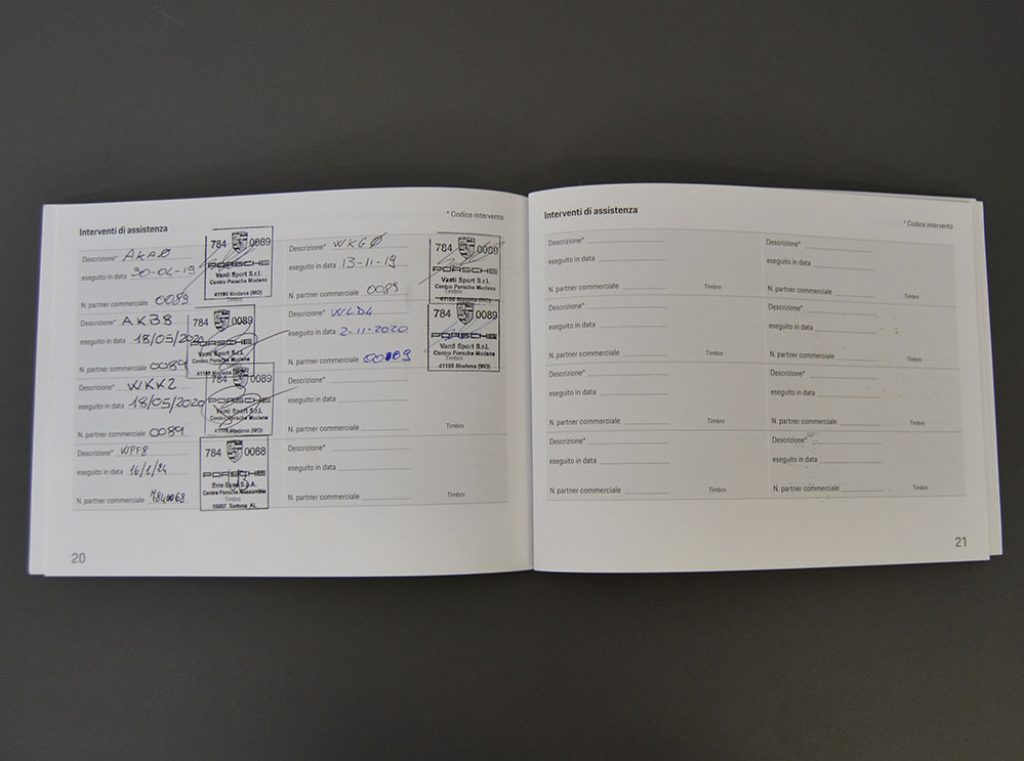 Interventi di assistenza
* Codice intervento
Descrizione* AKA0
eseguito in data 30-04-19
N. partner commerciale 0089
784 0089
PORSCHE
Vanti Sport S.r.l.
Centro Porsche Modena
Timbro
41100 Modena (MO)
Descrizione* WKG0
eseguito in data 13-11-19
N. partner commerciale 0089
784 0089
PORSCHE
Vanti Sport S.r.l.
Centro Porsche Modena
Timbro
41100 Modena (MO)
Descrizione* AKB8
eseguito in data 18/05/2020
N. partner commerciale 0089
784 0089
PORSCHE
Vanti Sport S.r.l.
Centro Porsche Modena
41100 Modena (MO)
Descrizione* WLD4
eseguito in data 2-11-2020
N. partner commerciale 0089
784 0089
PORSCHE
Vanti Sport S.r.l.
Centro Porsche Modena
41100 Modena (MO)
Descrizione* WKK2
eseguito in data 18/05/2020
N. partner commerciale 0089
784 0089
PORSCHE
Vanti Sport S.r.l.
Centro Porsche Modena
41100 Modena (MO)
Descrizione*
eseguito in data
N. partner commerciale
Timbro
Descrizione* WPF8
eseguito in data
N. partner commerciale 7840068
784 0068
PORSCHE
Centro Porsche
Timbro
15057 Tortona AL
Descrizione*
eseguito in data
N. partner commerciale
Timbro
20
Interventi di assistenza
* Codice intervento
Descrizione*
eseguito in data
N. partner commerciale
Timbro
Descrizione*
eseguito in data
N. partner commerciale
Timbro
Descrizione*
eseguito in data
N. partner commerciale
Timbro
Descrizione*
eseguito in data
N. partner commerciale
Timbro
Descrizione*
eseguito in data
N. partner commerciale
Timbro
Descrizione*
eseguito in data
N. partner commerciale
Timbro
Descrizione*
eseguito in data
N. partner commerciale
Timbro
Descrizione*
eseguito in data
N. partner commerciale
Timbro
21